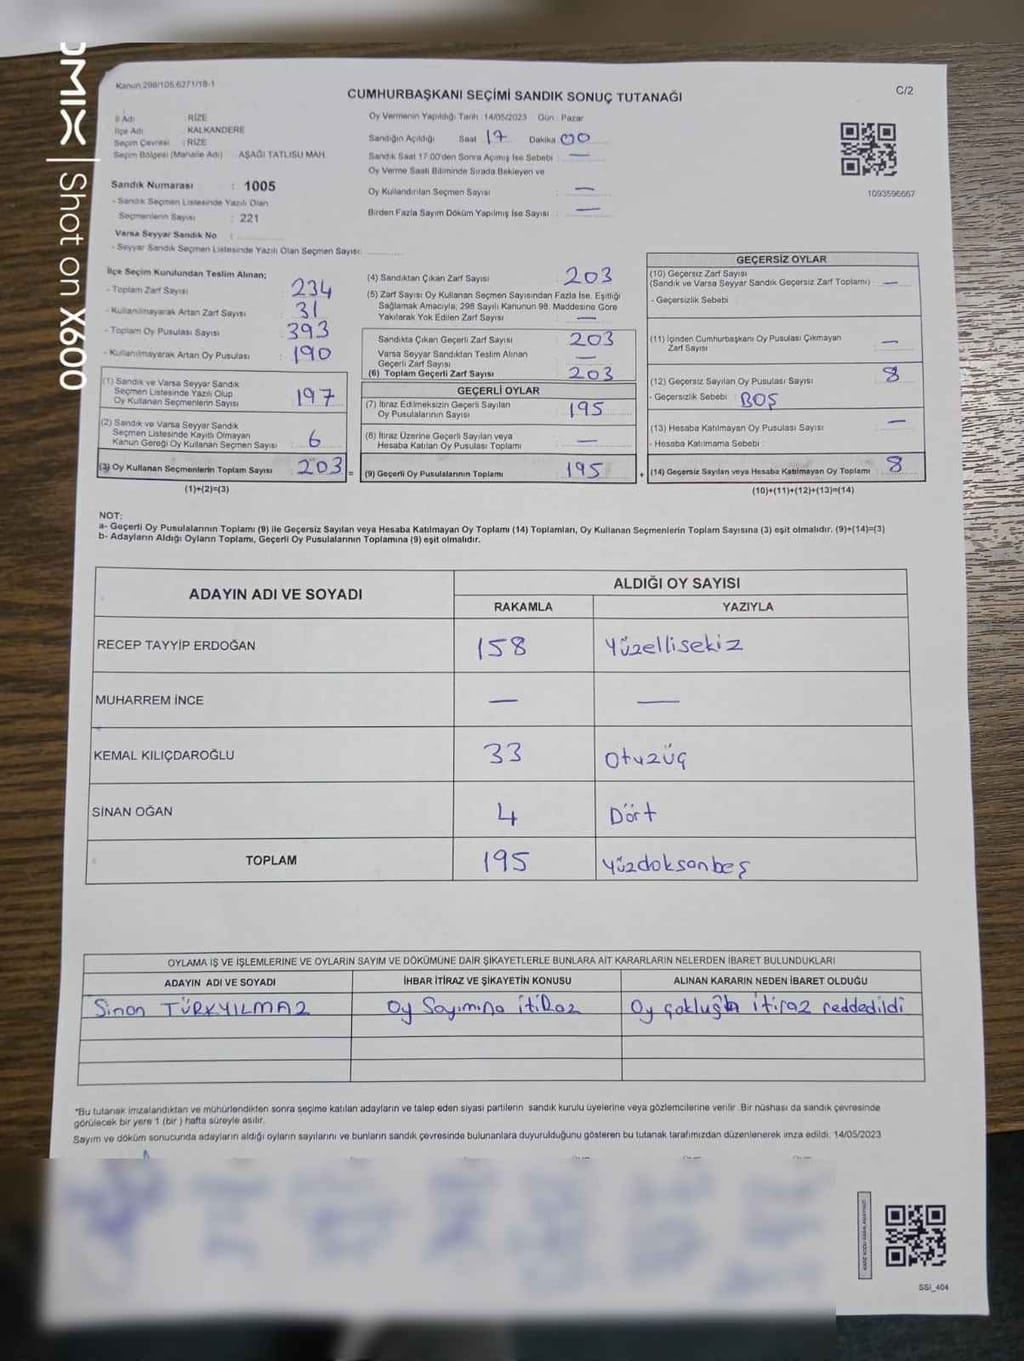 OMIX | Shot on X600
Kanun 298/105,6271/18-1
CUMHURBAŞKANI SEÇİMİ SANDIK SONUÇ TUTANAĞI
C/2
İl Adı : RİZE
İlçe Adı : KALKANDERE
Seçim Çevresi : RİZE
Seçim Bölgesi (Mahalle Adı) : AŞAĞI TATLISU MAH.
Sandık Numarası : 1005
- Sandık Seçmen Listesinde Yazılı Olan
Seçmenlerin Sayısı : 221
Varsa Seyyar Sandık No :
- Seyyar Sandık Seçmen Listesinde Yazılı Olan Seçmen Sayısı:
Oy Vermenin Yapıldığı Tarih : 14/05/2023 Gün : Pazar
Sandığın Açıldığı Saat 17 Dakika 00
Sandık Saat 17:00'den Sonra Açılmış İse Sebebi : —
Oy Verme Saati Bitiminde Sırada Bekleyen ve
Oy Kullandırılan Seçmen Sayısı : —
Birden Fazla Sayım Döküm Yapılmış İse Sayısı : —
1093596667
İlçe Seçim Kurulundan Teslim Alınan;
- Toplam Zarf Sayısı : 234
- Kullanılmayarak Artan Zarf Sayısı : 31
- Toplam Oy Pusulası Sayısı : 393
- Kullanılmayarak Artan Oy Pusulası : 190
(1) Sandık ve Varsa Seyyar Sandık
Seçmen Listesinde Yazılı Olup
Oy Kullanan Seçmenlerin Sayısı : 197
(2) Sandık ve Varsa Seyyar Sandık
Seçmen Listesinde Kayıtlı Olmayan
Kanun Gereği Oy Kullanan Seçmen Sayısı : 6
(3) Oy Kullanan Seçmenlerin Toplam Sayısı : 203 =
(1)+(2)=(3)
(4) Sandıktan Çıkan Zarf Sayısı : 203
(5) Zarf Sayısı Oy Kullanan Seçmen Sayısından Fazla İse, Eşitliği
Sağlamak Amacıyla, 298 Sayılı Kanunun 98. Maddesine Göre
Yakılarak Yok Edilen Zarf Sayısı : —
Sandıkta Çıkan Geçerli Zarf Sayısı : 203
Varsa Seyyar Sandıktan Teslim Alınan
Geçerli Zarf Sayısı : —
(6) Toplam Geçerli Zarf Sayısı : 203
GEÇERLİ OYLAR
(7) İtiraz Edilmeksizin Geçerli Sayılan
Oy Pusulalarının Sayısı : 195
(8) İtiraz Üzerine Geçerli Sayılan veya
Hesaba Katılan Oy Pusulası Toplamı : —
(9) Geçerli Oy Pusulalarının Toplamı : 195 +
GEÇERSİZ OYLAR
(10) Geçersiz Zarf Sayısı
(Sandık ve Varsa Seyyar Sandık Geçersiz Zarf Toplamı) : —
- Geçersizlik Sebebi :
(11) İçinden Cumhurbaşkanı Oy Pusulası Çıkmayan
Zarf Sayısı : —
(12) Geçersiz Sayılan Oy Pusulası Sayısı : 8
- Geçersizlik Sebebi : BOŞ
(13) Hesaba Katılmayan Oy Pusulası Sayısı : —
- Hesaba Katılmama Sebebi :
(14) Geçersiz Sayılan veya Hesaba Katılmayan Oy Toplamı : 8
(10)+(11)+(12)+(13)=(14)
NOT:
a- Geçerli Oy Pusulalarının Toplamı (9) ile Geçersiz Sayılan veya Hesaba Katılmayan Oy Toplamı (14) Toplamları, Oy Kullanan Seçmenlerin Toplam Sayısına (3) eşit olmalıdır. (9)+(14)=(3)
b- Adayların Aldığı Oyların Toplamı, Geçerli Oy Pusulalarının Toplamına (9) eşit olmalıdır.
ADAYIN ADI VE SOYADI
ALDIĞI OY SAYISI
RAKAMLA YAZIYLA
RECEP TAYYİP ERDOĞAN 158 Yüzellisekiz
MUHARREM İNCE — —
KEMAL KILIÇDAROĞLU 33 Otuzüç
SİNAN OĞAN 4 Dört
TOPLAM 195 Yüzdoksanbeş
OYLAMA İŞ VE İŞLEMLERİNE VE OYLARIN SAYIM VE DÖKÜMÜNE DAİR ŞİKAYETLERLE BUNLARA AİT KARARLARIN NELERDEN İBARET BULUNDUKLARI
ADAYIN ADI VE SOYADI İHBAR İTİRAZ VE ŞİKAYETİN KONUSU ALINAN KARARIN NEDEN İBARET OLDUĞU
Sinan TÜRKYILMAZ Oy Sayımına itiraz Oy çokluğla itiraz reddedildi
*Bu tutanak imzalandıktan ve mühürlendikten sonra seçime katılan adayların ve talep eden siyasi partilerin sandık kurulu üyelerine veya gözlemcilerine verilir. Bir nüshası da sandık çevresinde
görülecek bir yere 1 (bir) hafta süreyle asılır.
Sayım ve döküm sonucunda adayların aldığı oyların sayılarını ve bunların sandık çevresinde bulunanlara duyurulduğunu gösteren bu tutanak tarafımızdan düzenlenerek imza edildi. 14/05/2023
SSİ_404